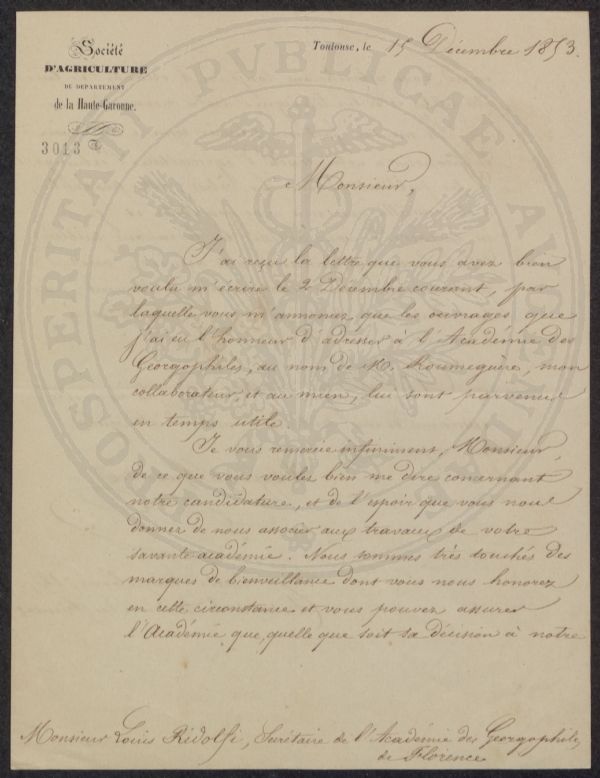 Société
D'AGRICULTURE
DU DEPARTEMENT
de la Haute-Garonne.
3013
Toulouse, le 15 Décembre 1853.
PROSPERITATI PUBLICAE AUGENDAE
Monsieur,
J'ai reçu la lettre que vous avez bien
voulu m'écrire le 2 Décembre courant, par
laquelle vous m'annoncez que les ouvrages que
j'ai eu l'honneur d'adresser à l'Académie des
Georgophiles, au nom de M. Roumeguère, mon
collaborateur et au mien, lui sont parvenus
en temps utile.
Je vous remercie infiniment, Monsieur,
de ce que vous voulez bien me dire concernant
notre candidature, et de l'espoir que vous nous
donnez de nous associer aux travaux de votre
savante académie. Nous sommes très touchés des
marques de bienveillance dont vous nous honorez
en cette circonstance et vous pouvez assurer
l'Académie que, quelle que soit sa décision à notre
Monsieur Louis Ridolfi, Secrétaire de l'Académie des Georgophiles
de Florence